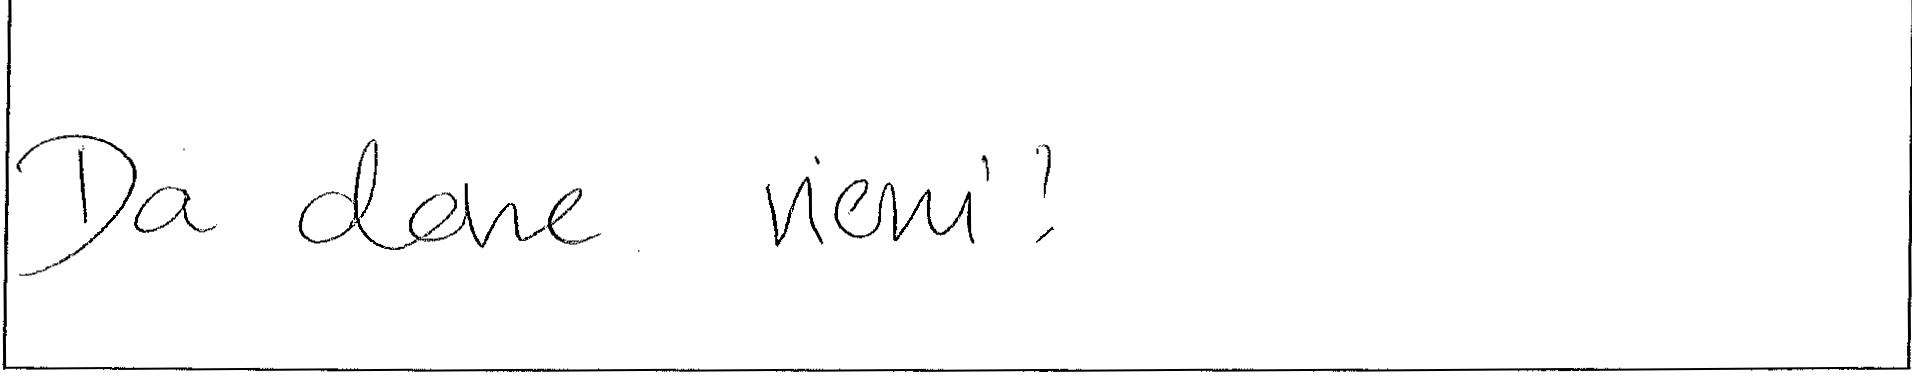 Da dove vieni?